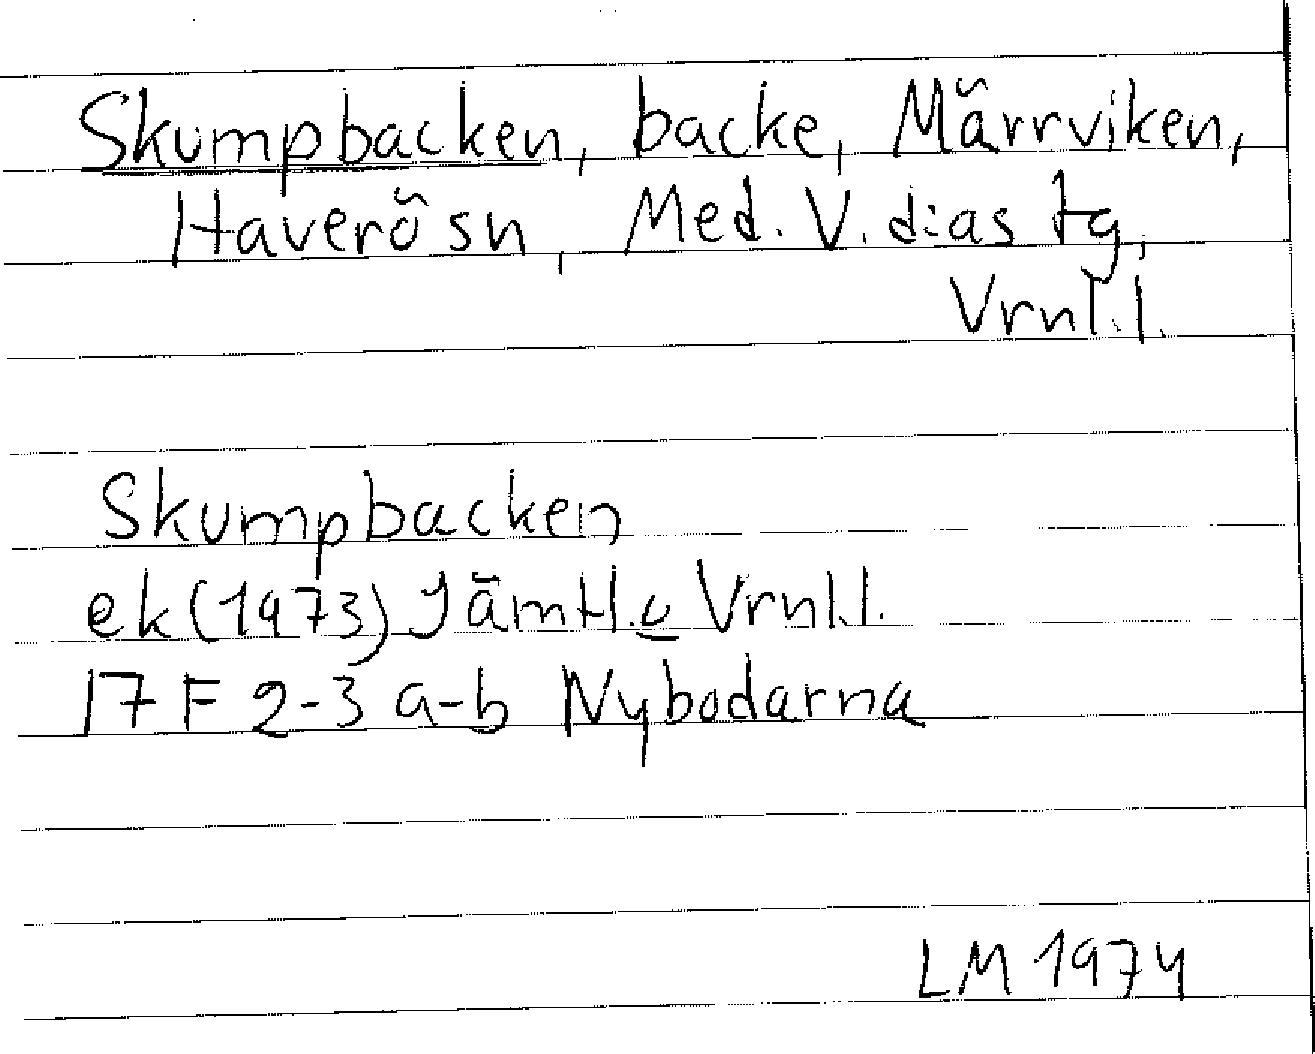 Skumpbacken, backe, Märrviken,
Haverö sn, Med. V. d:as tg,
Vrnl.l.
Skumpbacken
ek (1973) Jämtl. o Vrnl.l.
17 F 2-3 a-b Nybodarna
LM 1974